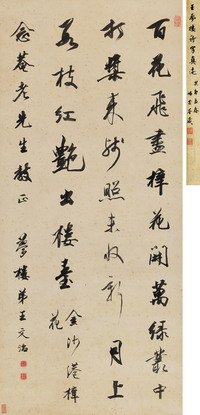 百花飛盡樟花開萬綠叢中
打槳來殘照未收新月上
枝紅艷出樓臺 金沙港樟
花
念菴老先生教正 夢樓弟王文治
王夢樓字真迹